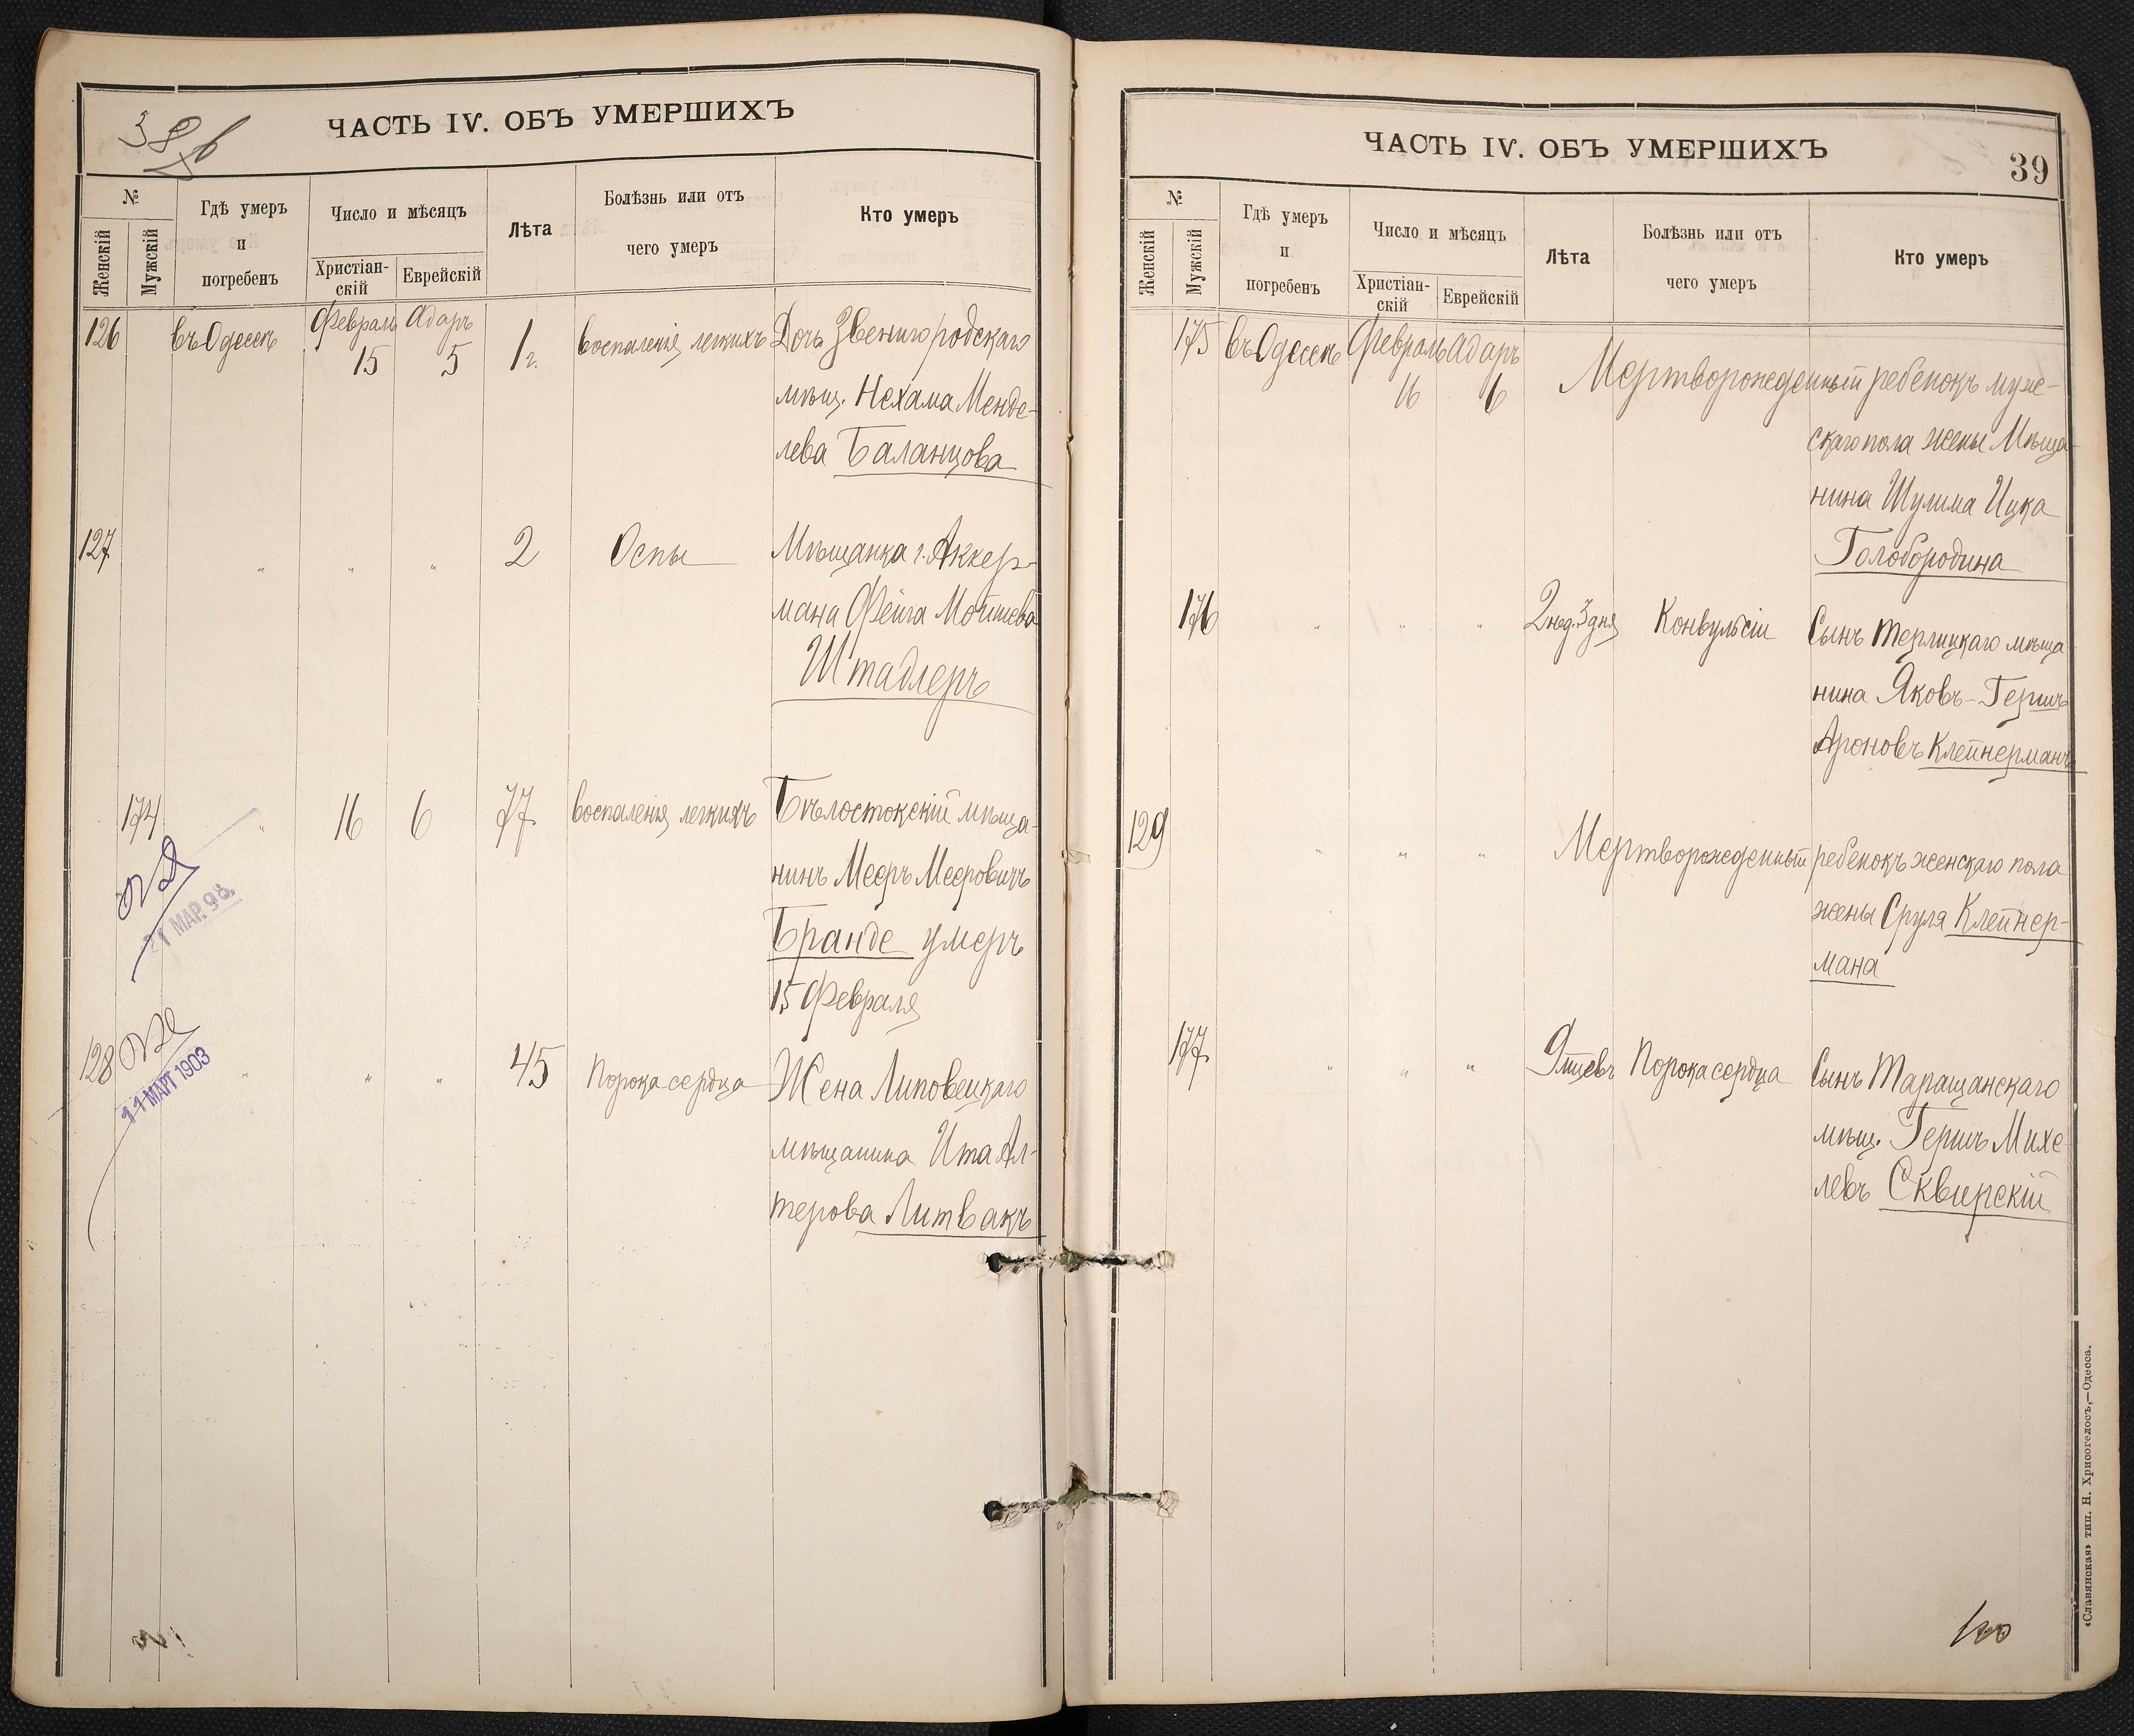 38б
ЧАСТЬ IV. ОБЪ УМЕРШИХЪ
№
Женскій
Мужскій
Гдѣ умеръ
и
погребенъ
Число и мѣсяцъ
Христіан-
скій
Еврейскій
Лѣта
Болѣзнь или отъ
чего умеръ
Кто умеръ
126 въ Одессѣ Февраль Адаръ 1 г. воспаленія легкихъ Дочь Звенигородскаго
15 5
мѣщ. Нехама Менде-
лева Баланцова
127 " " " 2 Оспы Мѣщанка г. Аккер-
мана Фейга Мошкева
Штадлеръ
174 " 16 6 77 воспаленія легкихъ Бѣлостокскій мѣща-
нинъ Мееръ Мееровичъ
Бранде умеръ
15 Февраля
21 МАР. 98
128 " " " 45 Порока сердца Жена Липовецкаго
11 МАРТ 1903
мѣщанина Ита Ал-
терова Литвакъ
ЧАСТЬ IV. ОБЪ УМЕРШИХЪ
39
№
Женскій
Мужскій
Гдѣ умеръ
и
погребенъ
Число и мѣсяцъ
Христіан-
скій
Еврейскій
Лѣта
Болѣзнь или отъ
чего умеръ
Кто умеръ
175 въ Одессѣ Февраль Адаръ
16 6 Мертворожденный ребенокъ муже-
скаго пола жены Мѣща-
нина Шулима Ицка
Голобородина
176 " " " 2 нед. 3 дня Конвульсіи Сынъ Терлицкаго мѣща-
нина Яковъ-Гершъ
Ароновъ Клейнерманъ
129 " " " Мертворожденный ребенокъ женскаго пола
жены Сруля Клейнер-
мана
177 " " " 9 мцевъ Порока сердца Сынъ Таращанскаго
мѣщ. Гершъ Михе
левъ Сквирскій
100
«Славянская» тип. Н. Хрисогелосъ,—Одесса.